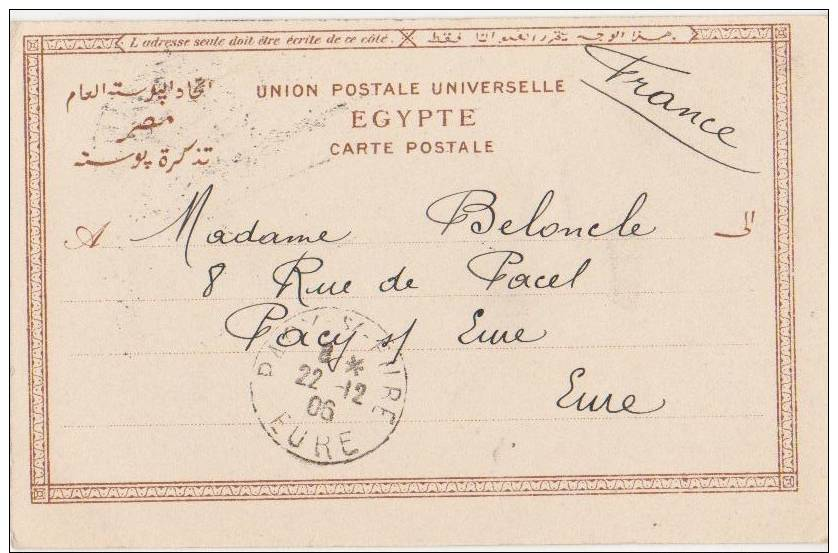 L'adresse seule doit être écrite de ce côté. هذا الوجه يقرر العنوان فقط.
اتحاد البوستة العام
مصر
تذكرة بوسته
UNION POSTALE UNIVERSELLE
EGYPTE
CARTE POSTALE
France
A Madame Beloncle الى
8 Rue de Pacel
Pacy s/ Eure
Eure
PACY-S-EURE
8 *
22 -12
06
EURE